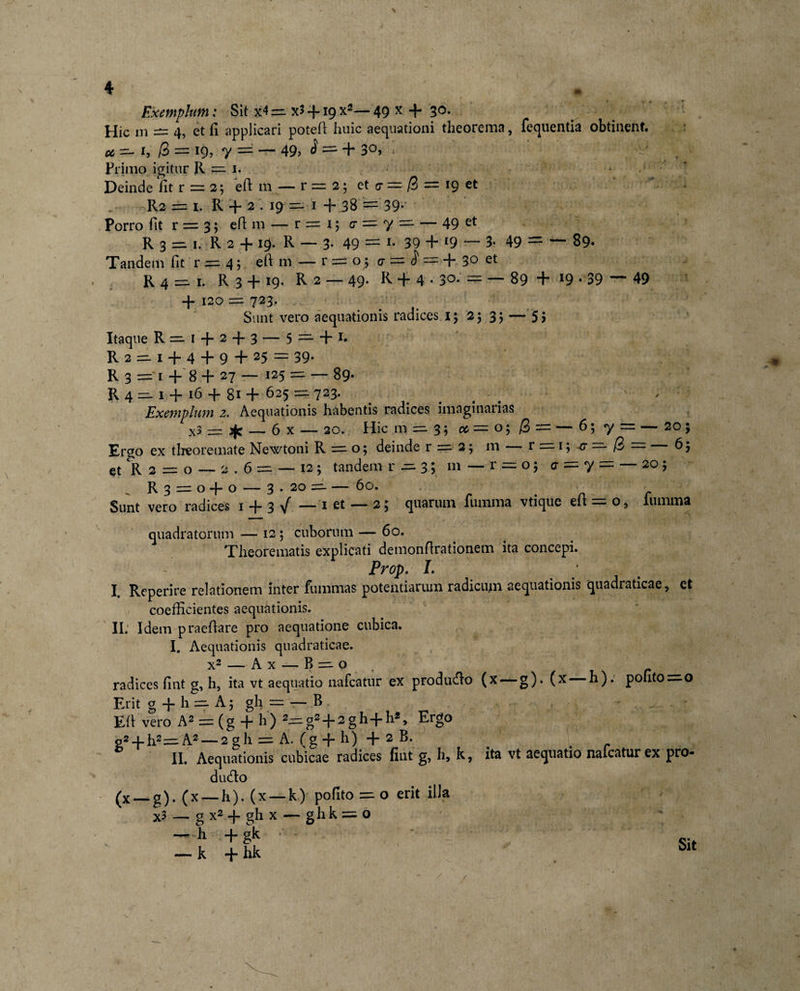 4
Exemplum: Sit x⁴ = x³ + 19 x² — 49 x + 30.
Hic m = 4, et ſi applicari poteſt huic aequationi theorema, ſequentia obtinent.
α = 1, β = 19, γ = — 49, δ = + 30,
Primo igitur R = 1.
Deinde fit r = 2; eſt m — r = 2; et σ = β = 19 et
R2 = 1. R + 2 . 19 = 1 + 38 = 39.
Porro fit r = 3; eſt m — r = 1; σ = γ = — 49 et
R 3 = 1. R 2 + 19. R — 3. 49 = 1. 39 + 19 — 3. 49 = — 89.
Tandem fit r = 4; eſt m — r = 0; σ = δ = + 30 et
R 4 = 1. R 3 + 19. R 2 — 49. R + 4 . 30. = — 89 + 19 . 39 — 49
+ 120 = 723.
Sunt vero aequationis radices 1; 2; 3; — 5;
Itaque R = 1 + 2 + 3 — 5 = + 1.
R 2 = 1 + 4 + 9 + 25 = 39.
R 3 = 1 + 8 + 27 — 125 = — 89.
R 4 = 1 + 16 + 81 + 625 = 723.
Exemplum 2. Aequationis habentis radices imaginarias
x³ = ✻ — 6 x — 20. Hic m = 3; α = 0; β = — 6; γ = — 20;
Ergo ex theoremate Newtoni R = 0; deinde r = 2; m — r = 1; σ = β = — 6;
et R 2 = 0 — 2 . 6 = — 12; tandem r = 3; m — r = 0; σ = γ = — 20;
R 3 = 0 + 0 — 3 . 20 = — 60.
Sunt vero radices 1 + 3 √ — 1 et — 2; quarum ſumma vtique eſt = 0, ſumma
quadratorum — 12; cuborum — 60.
Theorematis explicati demonſtrationem ita concepi.
Prop. I.
I. Reperire relationem inter ſummas potentiarum radicum aequationis quadraticae, et
coefficientes aequationis.
II. Idem praeſtare pro aequatione cubica.
I. Aequationis quadraticae.
x² — A x — B = 0
radices ſint g, h, ita vt aequatio naſcatur ex producto (x—g). (x—h). poſito = 0
Erit g + h = A; gh = — B
Eſt vero A² = (g + h) ² = g² + 2 g h + h², Ergo
g² + h² = A² — 2 g h = A. (g + h) + 2 B.
II. Aequationis cubicae radices ſint g, h, k, ita vt aequatio naſcatur ex pro-
ducto
(x — g). (x — h). (x — k) poſito = 0 erit illa
x³ — g x² + gh x — g h k = 0
— h + gk
— k + hk
Sit